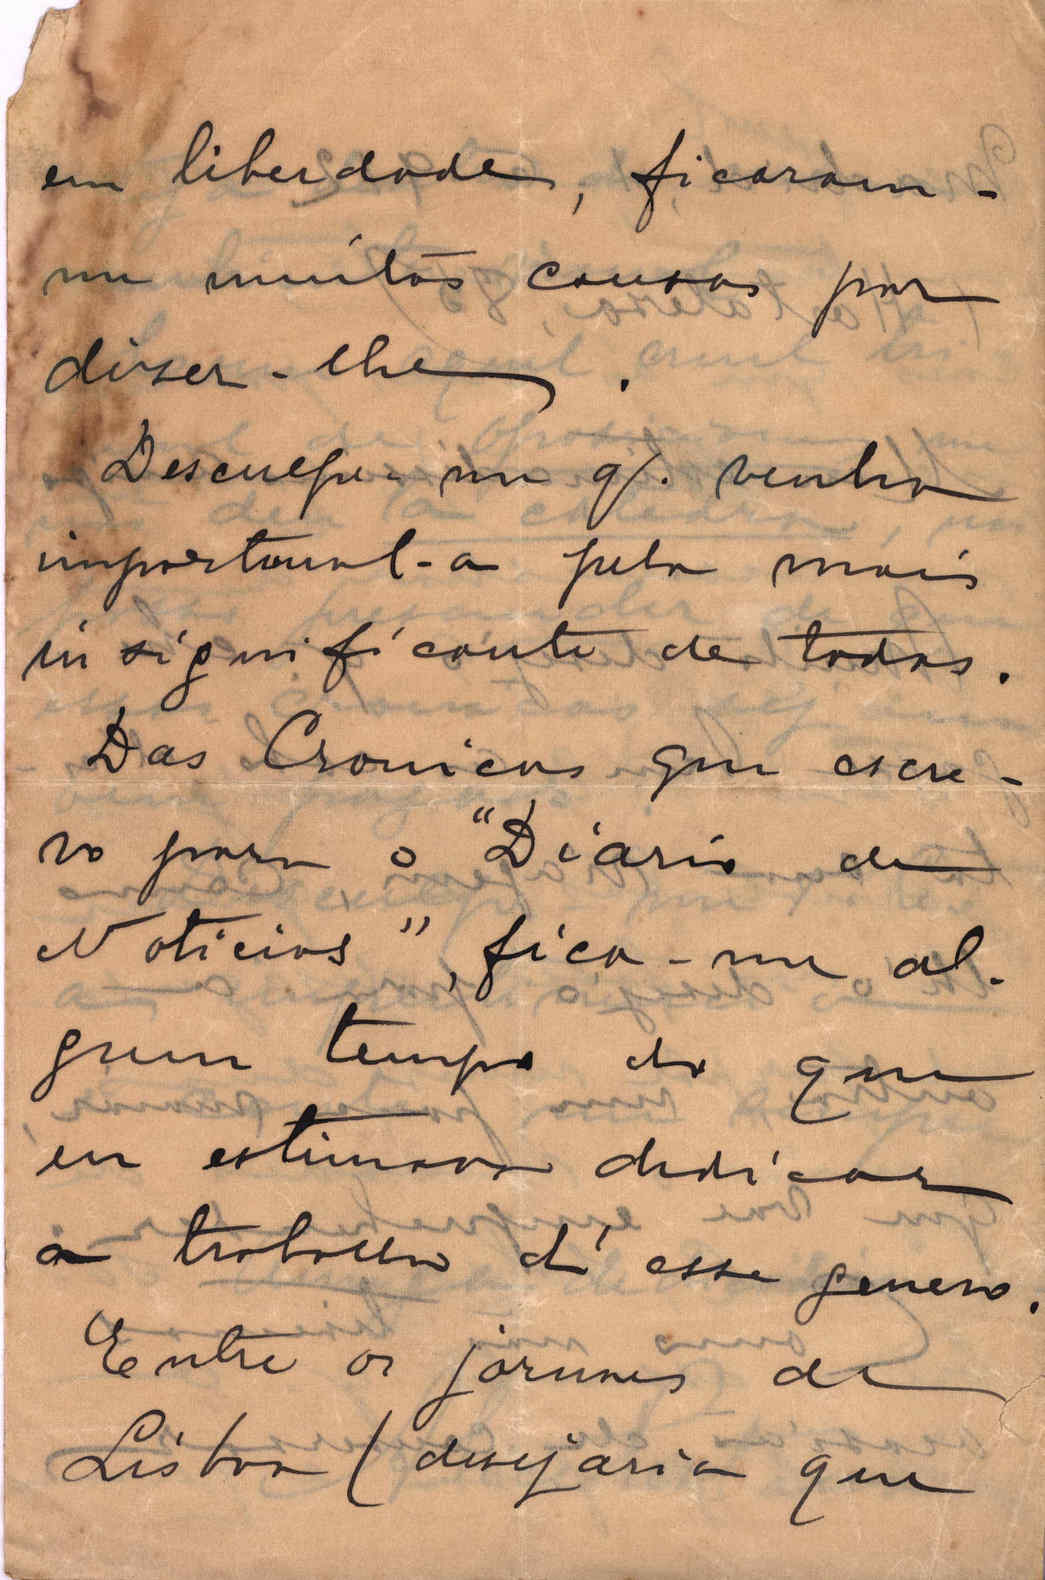 em liberdade, ficaram-
me muitas cousas por
dizer-lhe.
Desculpe-me q/. venha
importunal-a pela mais
insignificante de todas.
Das Cronicas que escre-
vo para o "Diario de
Noticias", fica-me al-
gum tempo do que
eu estimava dedicar
a trabalho d'esse genero.
Entre os jornaes de
Lisboa (desejaria que